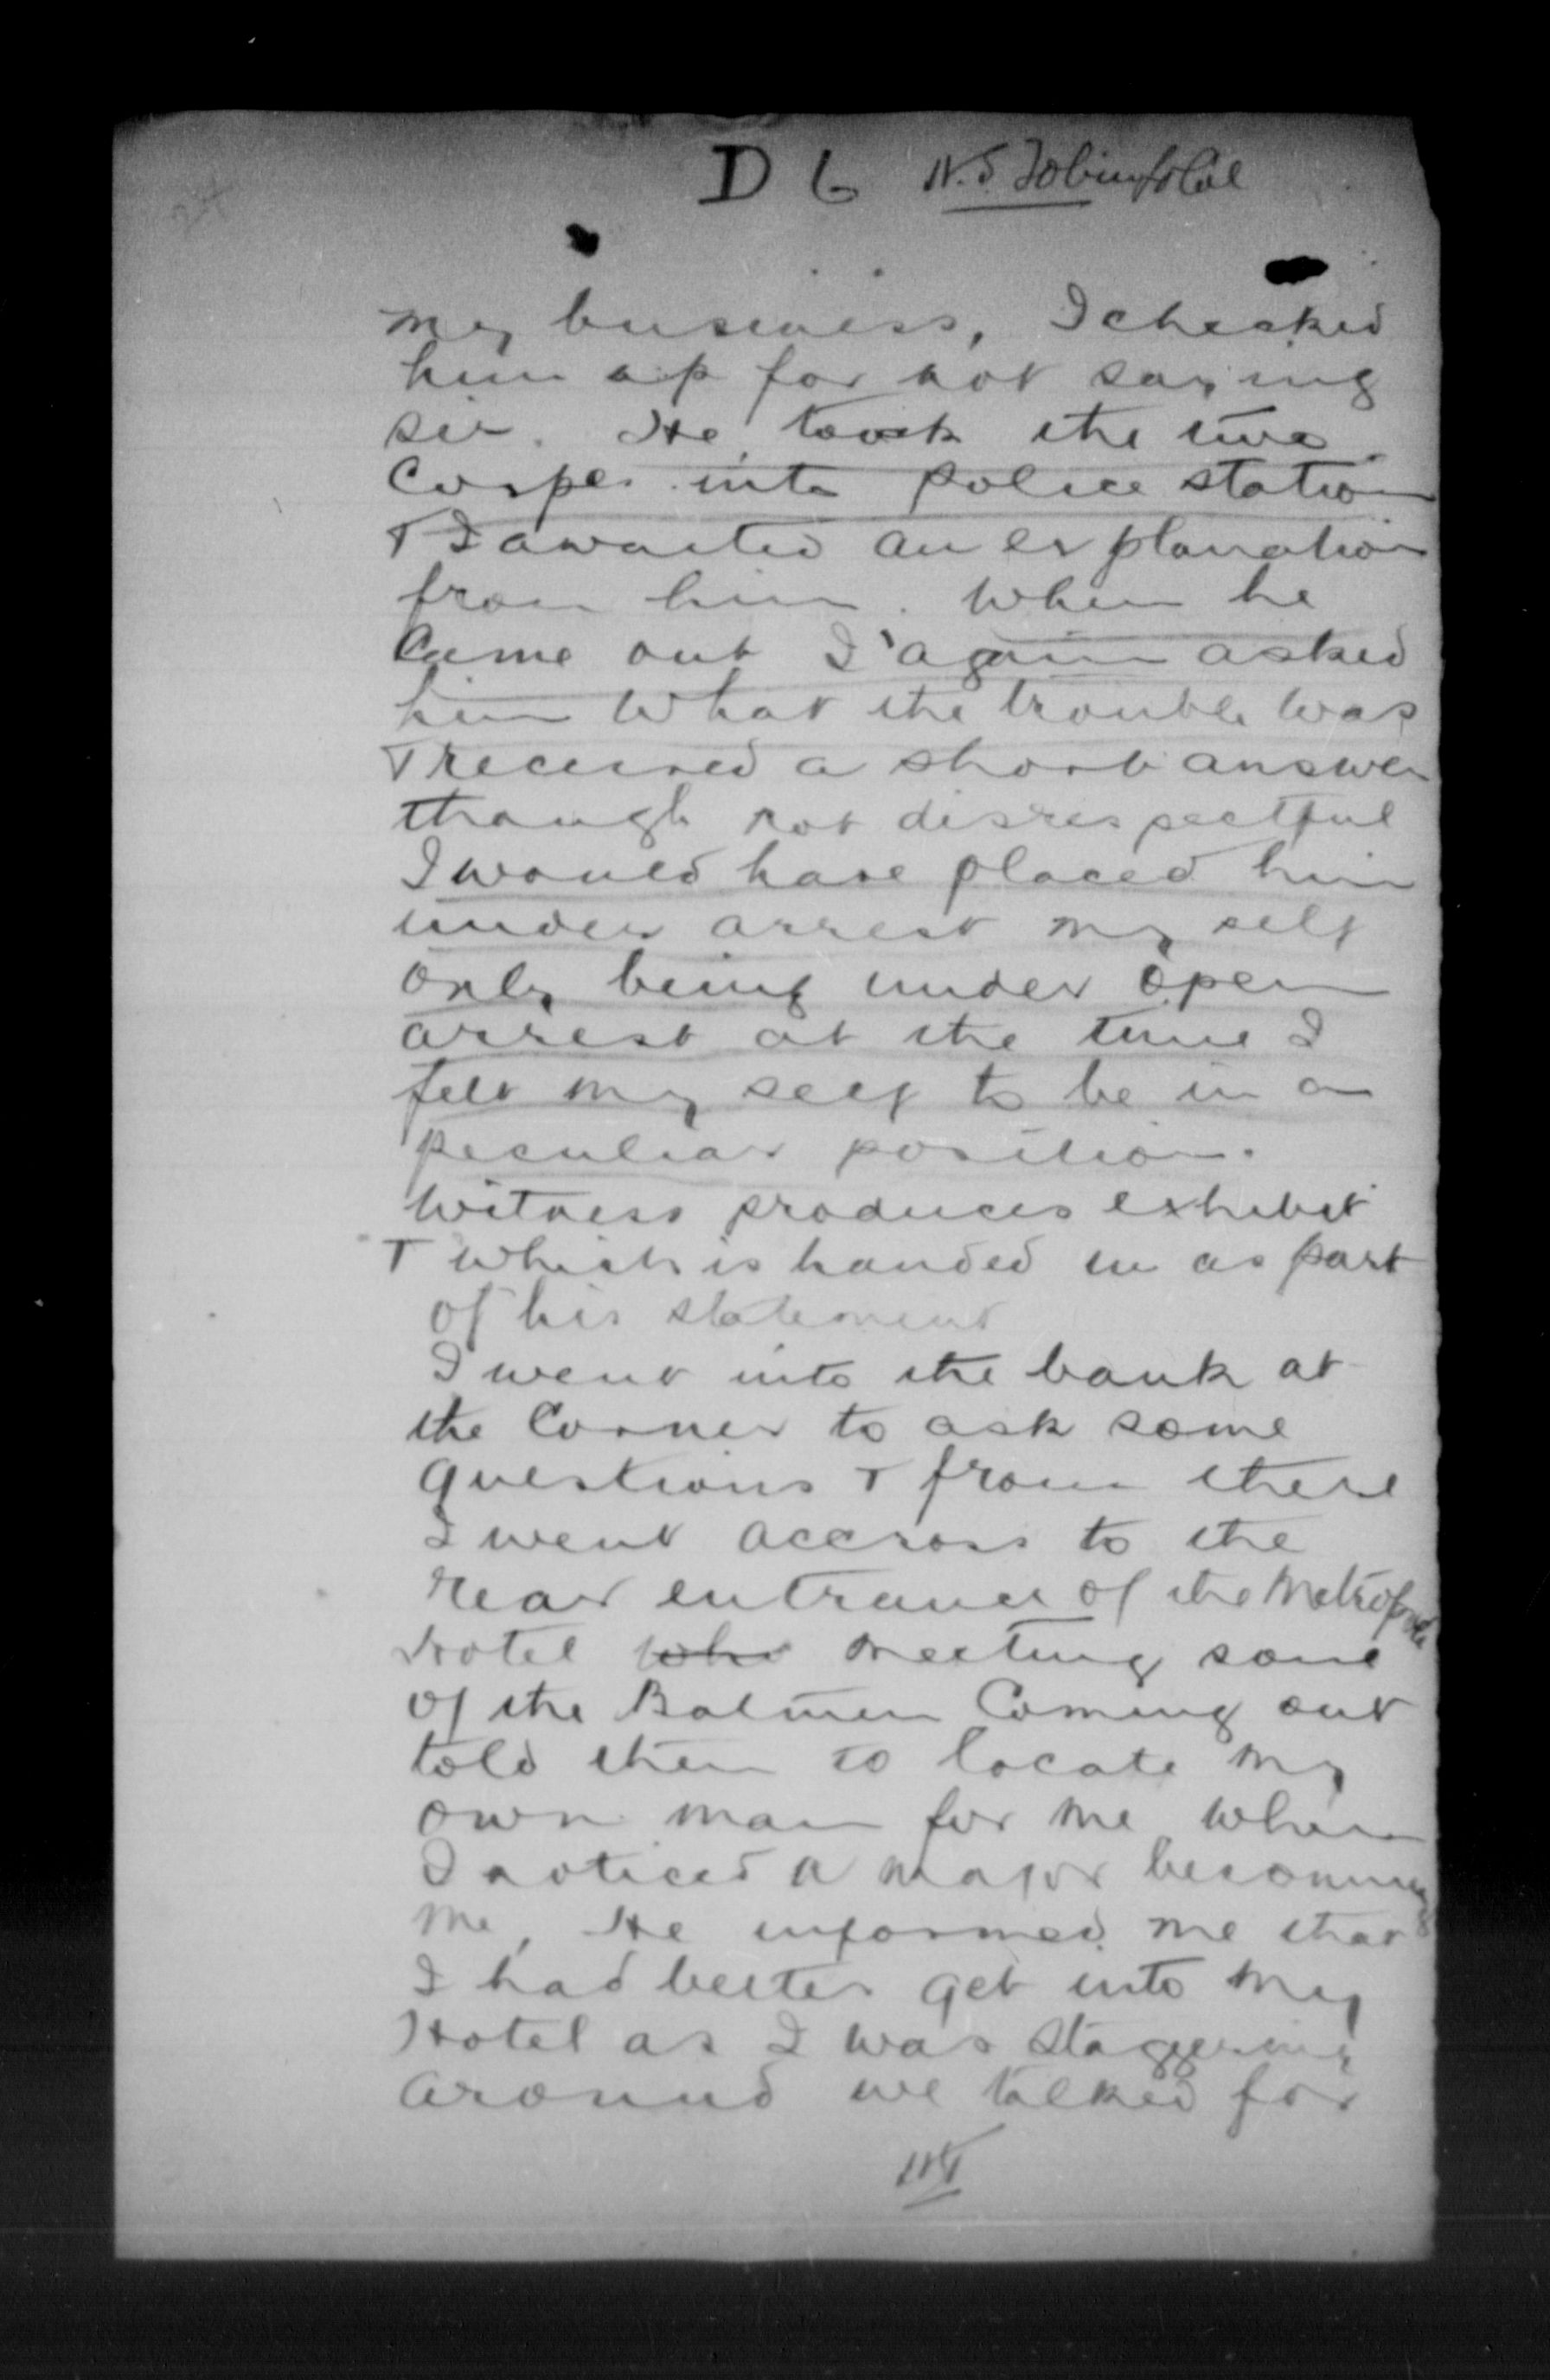 D 6 H.S. Tobin Lt Col
my business, I checked
him up for not saying
sir. He took the two
Corpe. into police station
+ I awaited an explanation
from him. When he
Came out I again asked
him what the trouble was
+ received a short answer
though not disrespectful
I would have placed him
under arrest my self
only being under open
arrest at the time I
felt my self to be in a
peculiar position.
Witness produces exhibit
T which is handed in as part
of his statement
I went into the bank at
the Corner to ask some
questions + from there
I went accross to the
rear entrance of the Metropole
Hotel who meeting some
of the Batmen Coming out
told them to locate my
own man for me when
I noticed a major beconing
me, He informed me that
I had better get into my
Hotel as I was staggering
around we talked for